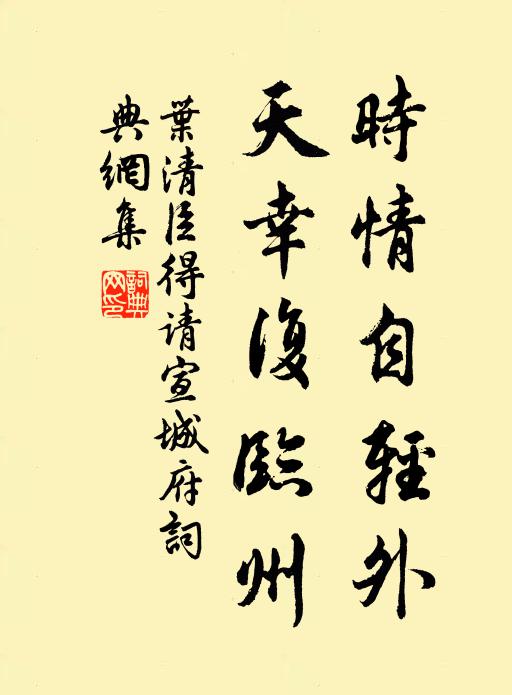 時情自輕外
天幸復臨州
葉清臣得请宣城府詞
典網集
詞典
网印